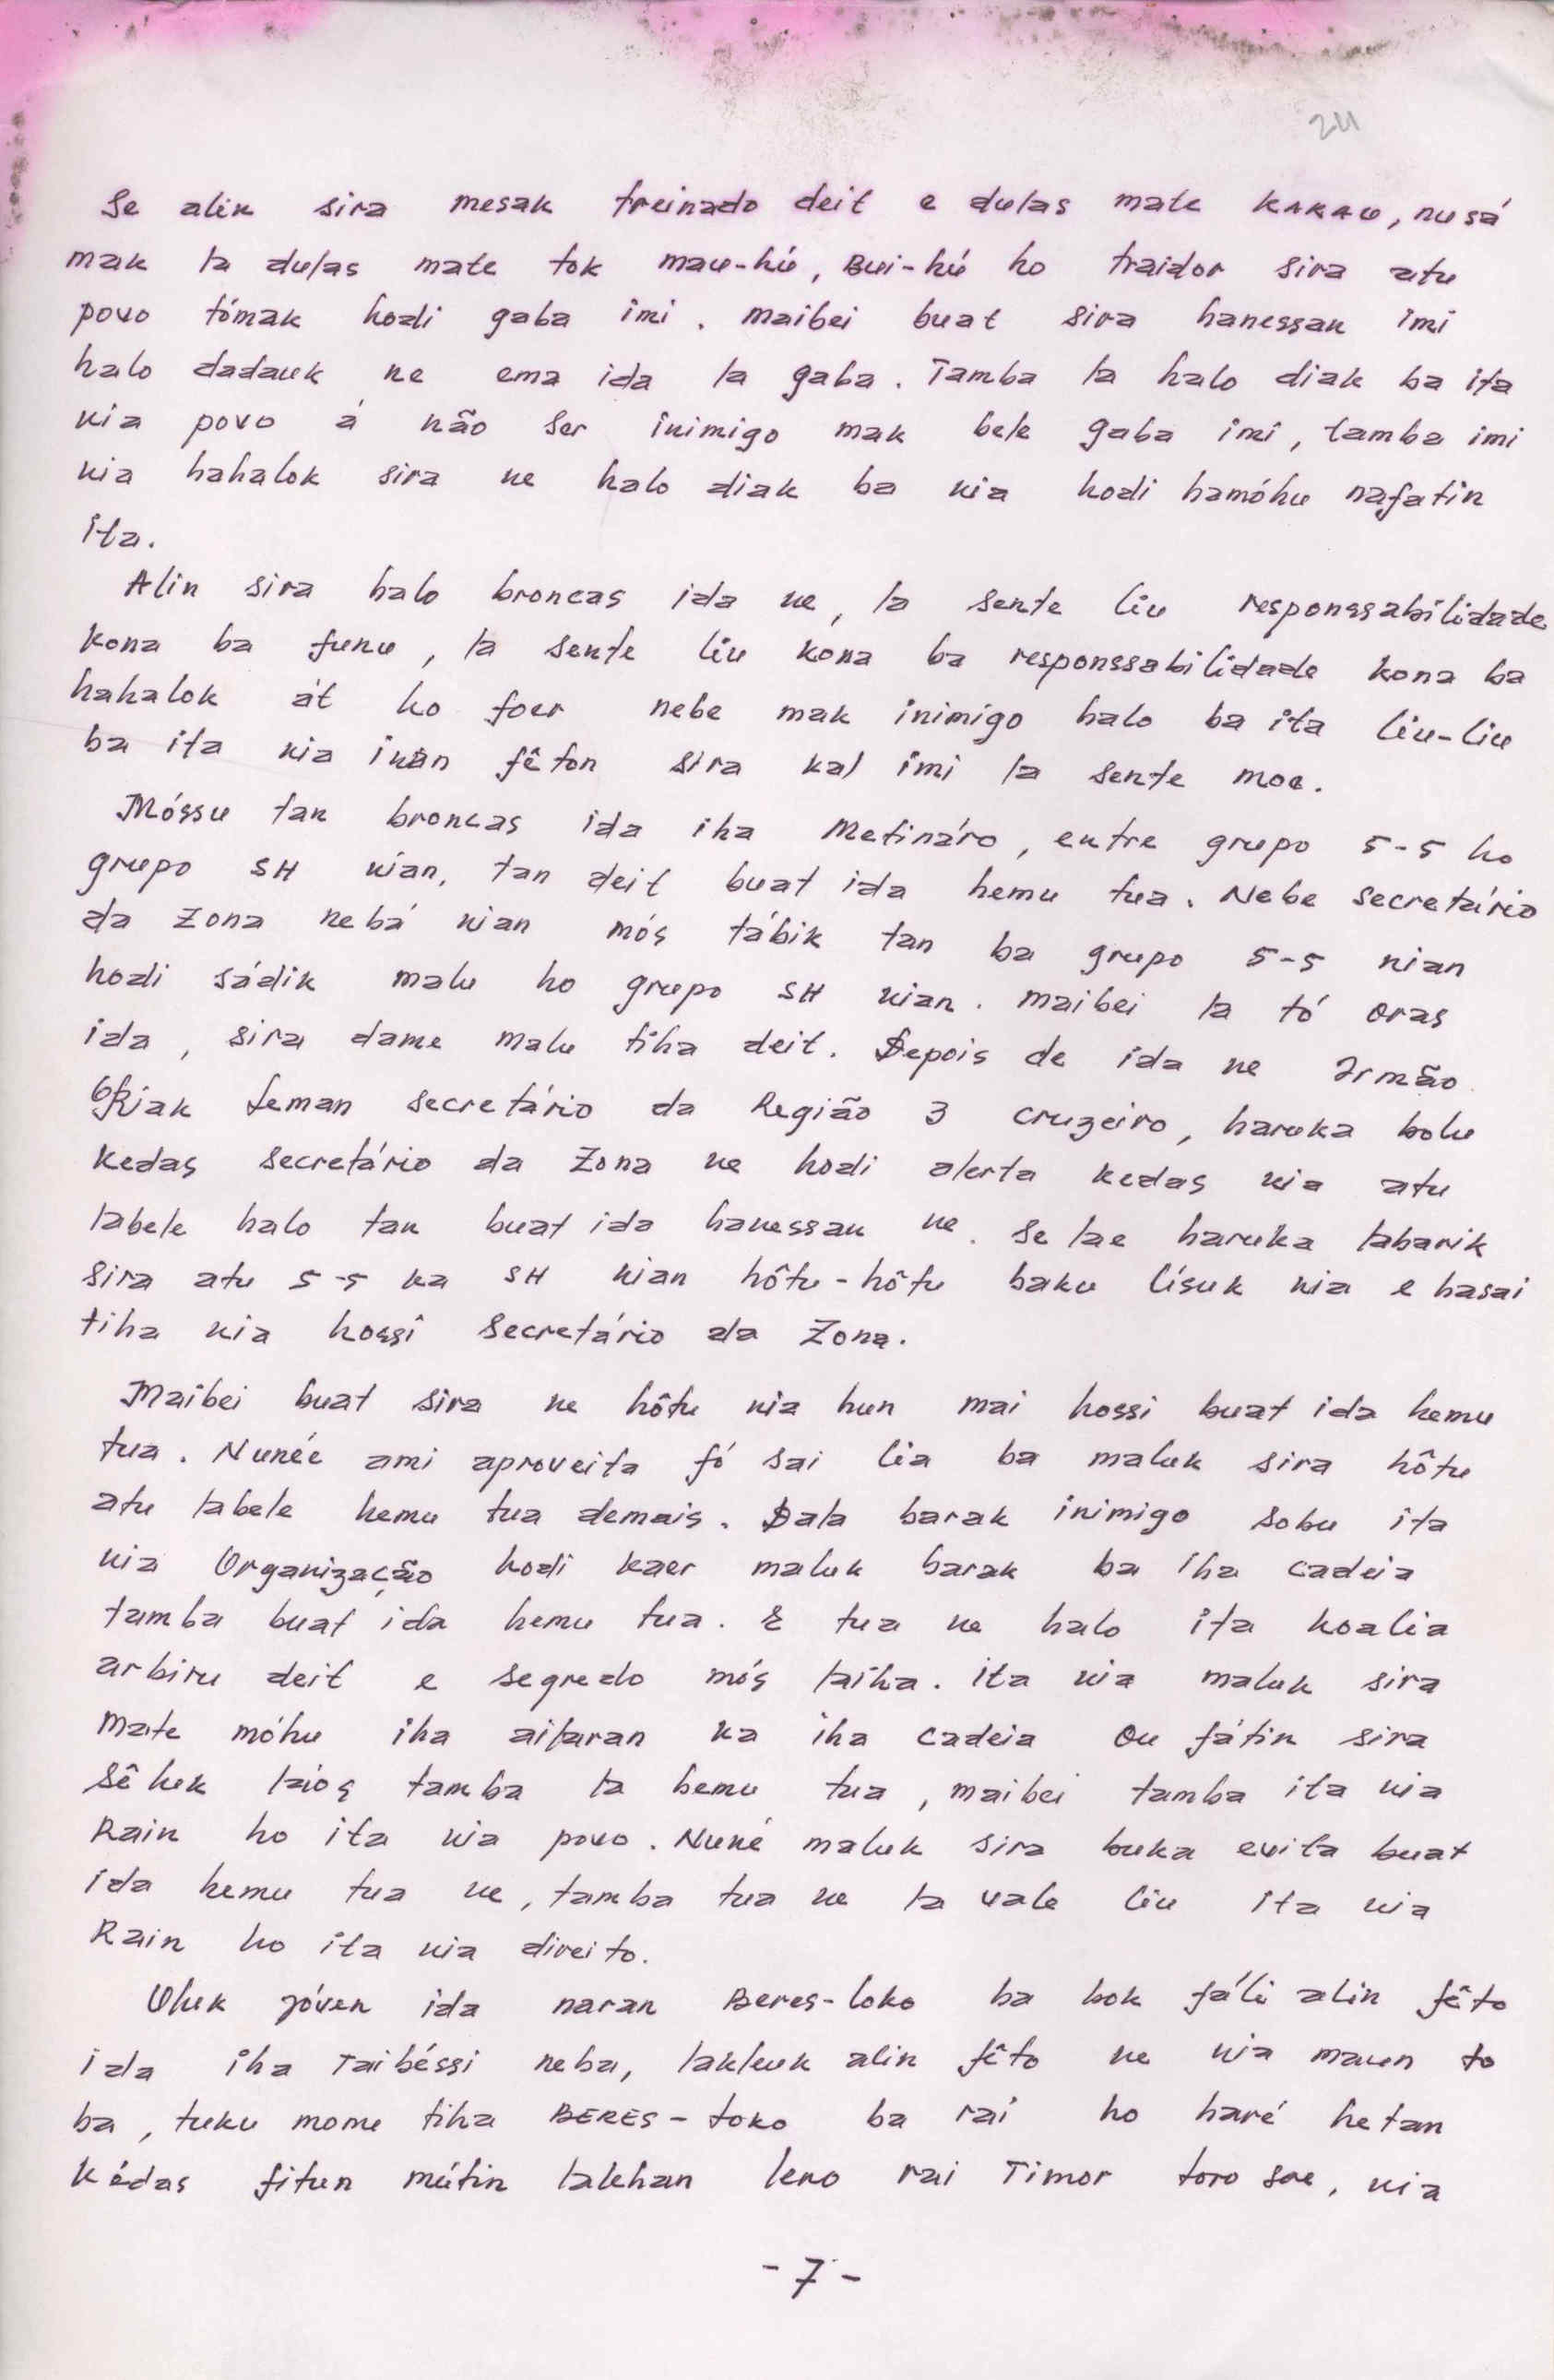 24
Se alin sira mesak treinado deit e dulas mate KAKAU, nusá
mak la dulas mate tok mau-hú, Bui-hú ho traidor sira atu
povo tómak hodi gaba imi. maibei buat sira hanessan imi
halo dadauk ne ema ida la gaba. Tamba la halo diak ba ita
nia povo á não ser inimigo mak bele gaba imi, tamba imi
nia hahalok sira ne halo diak ba nia hodi hamóhu nafatin
ita.
Alin sira halo broncas ida ne, la sente liu responssabilidade
kona ba funu, la sente liu kona ba responssabilidade kona ba
hahalok át ho foer nebe mak inimigo halo ba ita liu-liu
ba ita nia inan fêton sira kal imi la sente moe.
Móssu tan broncas ida iha Metináro, entre grupo 5-5 ho
grupo SH nian, tan deit buat ida hemu tua. Nebe secretário
da Zona nebá nian mós tábik tan ba grupo 5-5 nian
hodi sádik malu ho grupo SH nian. maibei la tó oras
ida, sira dame malu tiha deit. Depois de ida ne Irmão
Riak Leman secretário da Região 3 cruzeiro, haruka bolu
kedas secretário da Zona ne hodi alerta kedas nia atu
labele halo tan buat ida hanessan ne. Se lae haruka labarik
sira atu 5-5 ka SH nian hôtu-hôtu baku lísuk nia e hasai
tiha nia hossi secretário da Zona.
Maibei buat sira ne hôtu nia hun mai hossi buat ida hemu
tua. Nunée ami aproveita fó sai lia ba maluk sira hôtu
atu labele hemu tua demais. Dala barak inimigo sobu ita
nia Organização hodi kaer maluk barak ba iha cadeia
tamba buat ida hemu tua. E tua ne halo ita koalia
arbiru deit e segredo mós laiha. ita nia maluk sira
mate móhu iha ailaran ka iha cadeia ou fátin sira
sêluk laiós tamba la hemu tua, maibei tamba ita nia
Rain ho ita nia povo. Nuné maluk sira buka evita buat
ida hemu tua ne, tamba tua ne la vale liu ita nia
Rain ho ita nia direito.
Uluk jóven ida naran Beres-loko ba bok fáli alin fêto
ida iha Taibéssi neba, lakleuk alin fêto ne nia maun to
ba, tuku mome tiha BERES-Loko ba rai ho haré hetan
kédas fitun mútin lalehan leno rai Timor loro sae, nia
-7-